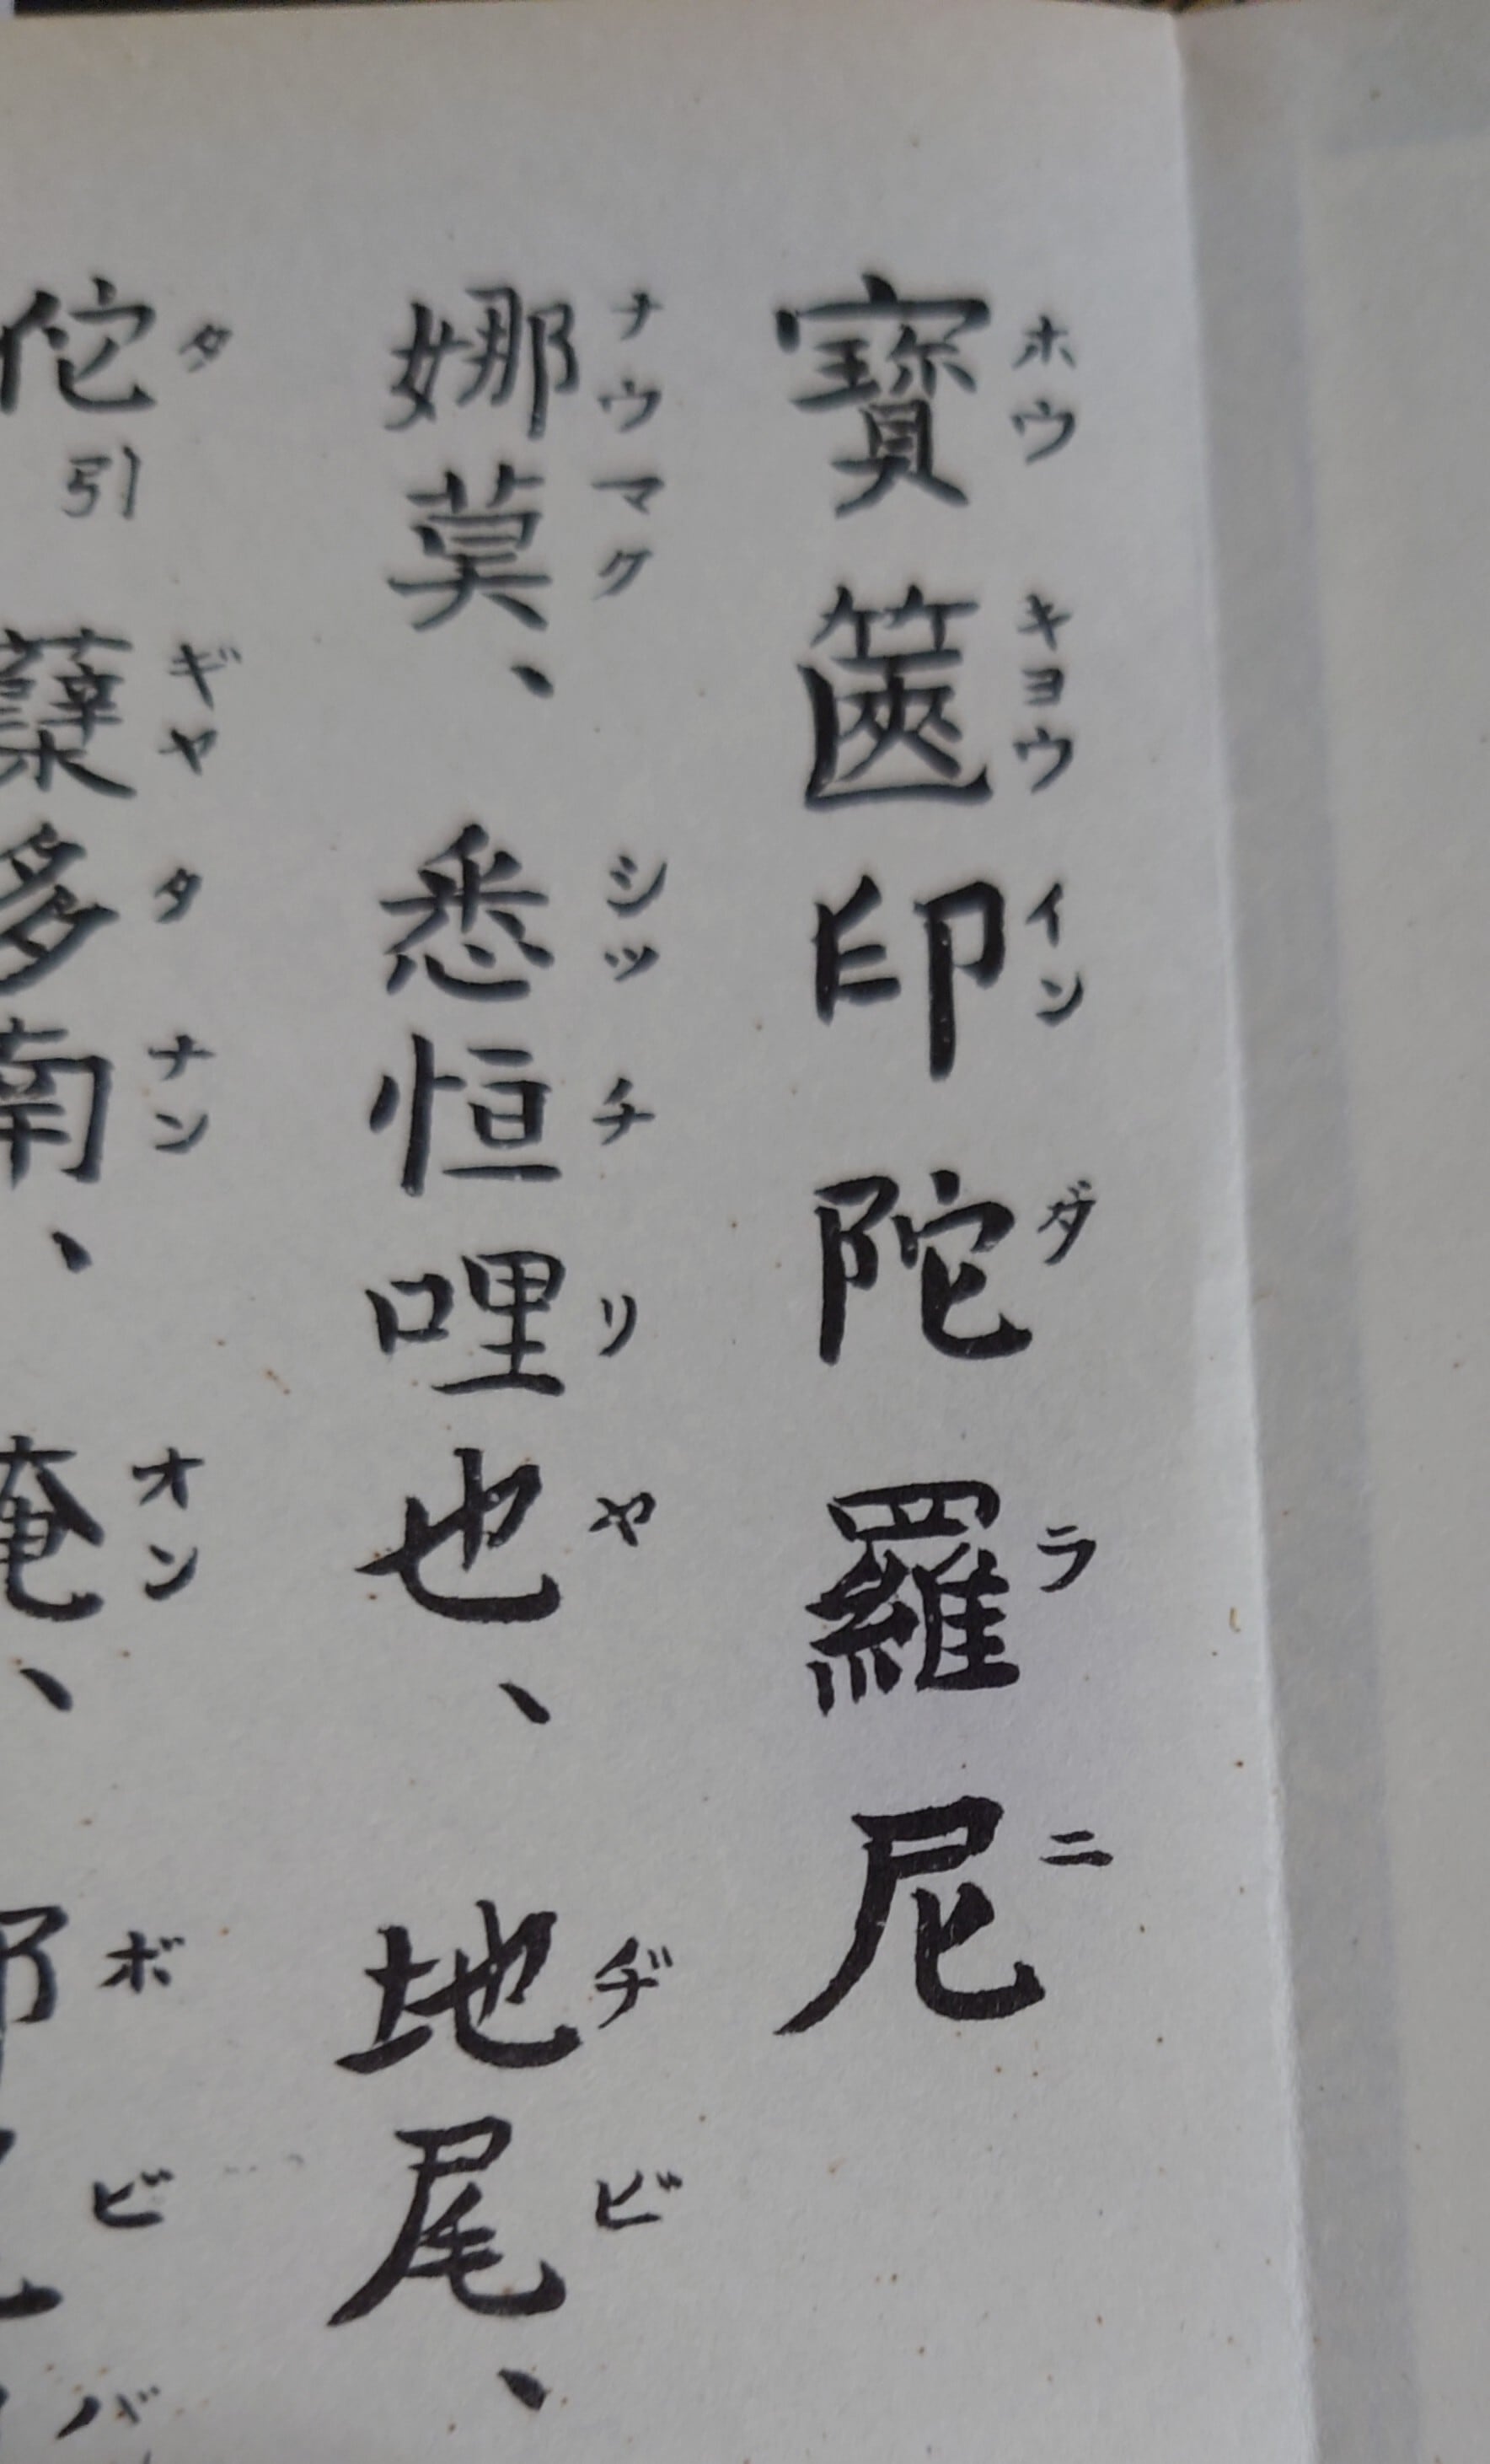 寶篋印陀羅尼
ホウキヨウインダラニ
娜莫、悉怛哩也、地尾、
ナウマクシッチリヤヂビ
佗引蘖多南、唵、
タギヤタナンオンボビバ